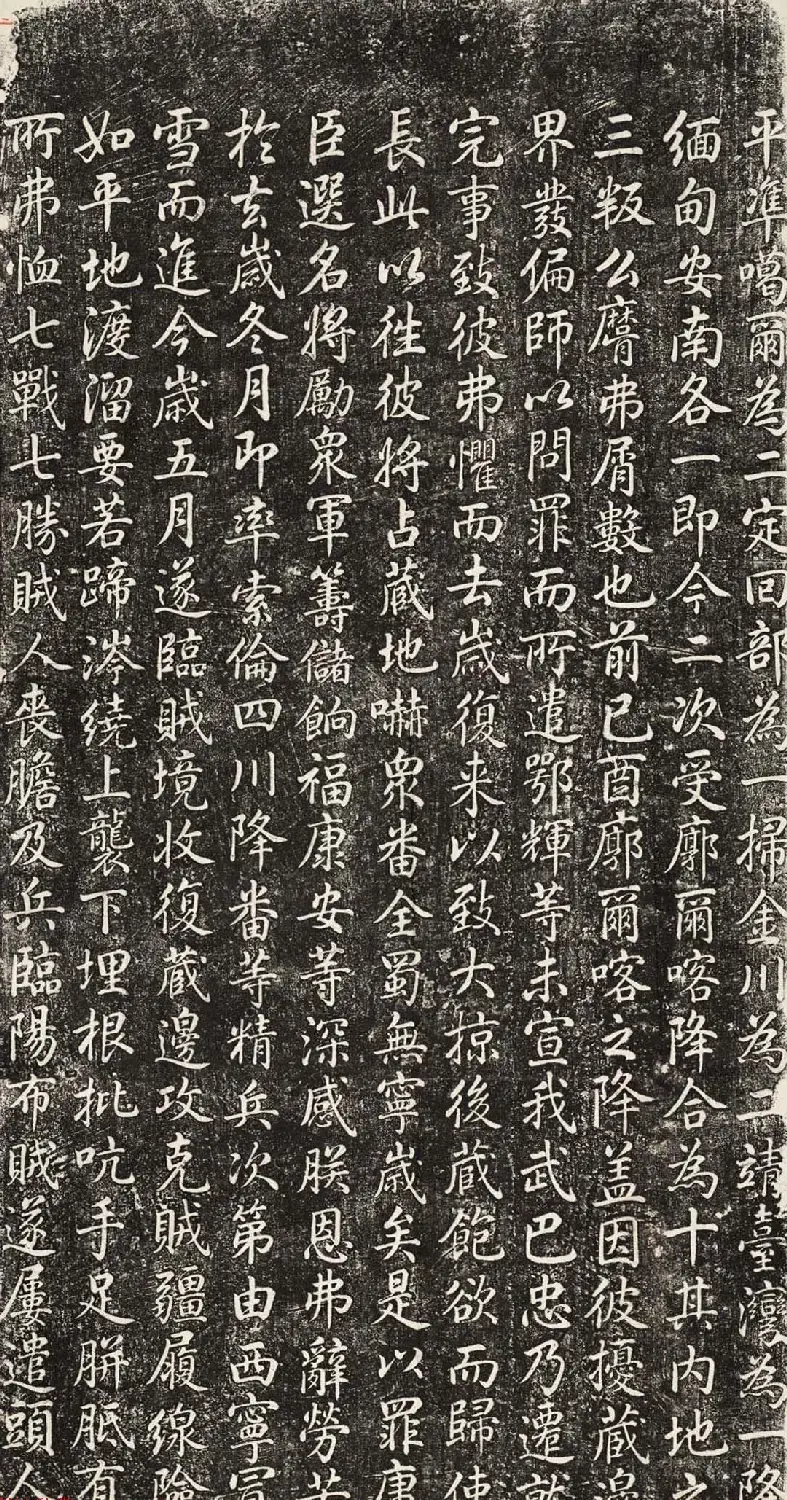 平凖噶爾為二定回部為一掃金川為二靖臺灣為一降
緬甸安南各一即今二次受廓爾喀降合為十其内地之
三叛么麿弗屑數也前已酉廓爾喀之降盖因彼擾藏邊
界發偏師以問罪而所遣鄂輝等未宣我武巴忠乃遷就
完事致彼弗懼而去歲復来以致大掠後藏飽欲而歸使
長此以徃彼將占藏地嚇衆番全蜀無寧歲矣是以罪庸
臣選名將勵衆軍籌儲餉福康安等深感朕恩弗辭勞苦
於去歲冬月即率索倫四川降番等精兵次第由西寧冒
雪而進今歲五月遂臨賊境收復藏邊攻克賊疆履線險
如平地渡溜要若蹄涔繞上襲下埋根批吭手足胼胝有
所弗恤七戰七勝賊人喪膽及兵臨陽布賊遂屢遣頭人